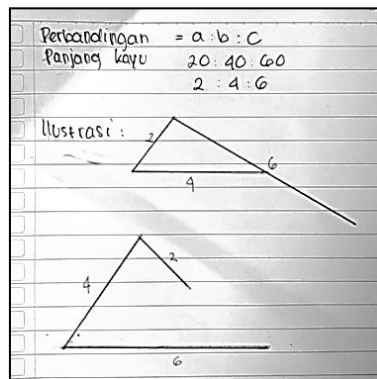 Perbandingan = a : b : c
Panjang kayu 20 : 40 : 60
2 : 4 : 6
Ilustrasi :
2
6
4
4
2
6